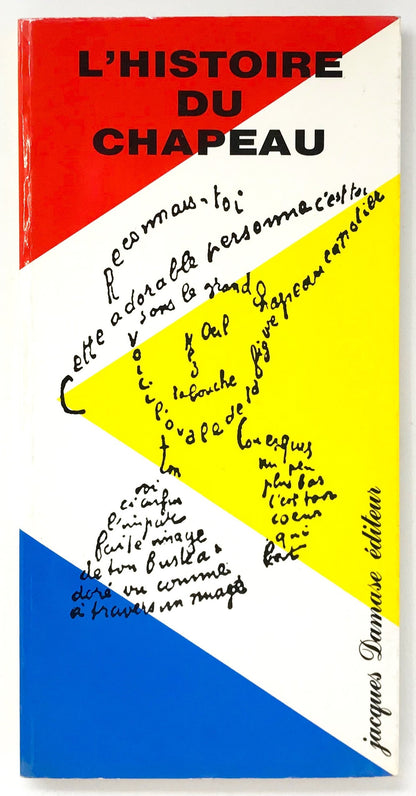 L'HISTOIRE
DU
CHAPEAU
Reconnais-toi
Cette adorable personne c'est toi
sous le grand chapeau canotier
Oeil
Nez
la bouche
Voici l'ovale de ta figure
ton
Cou exquis
oi
ci enfin
l'impar
faite image
de ton buste a
doré vu comme
à travers un nuage
un peu
plus bas
c'est ton
coeur
qui
bat
jacques Damase éditeur